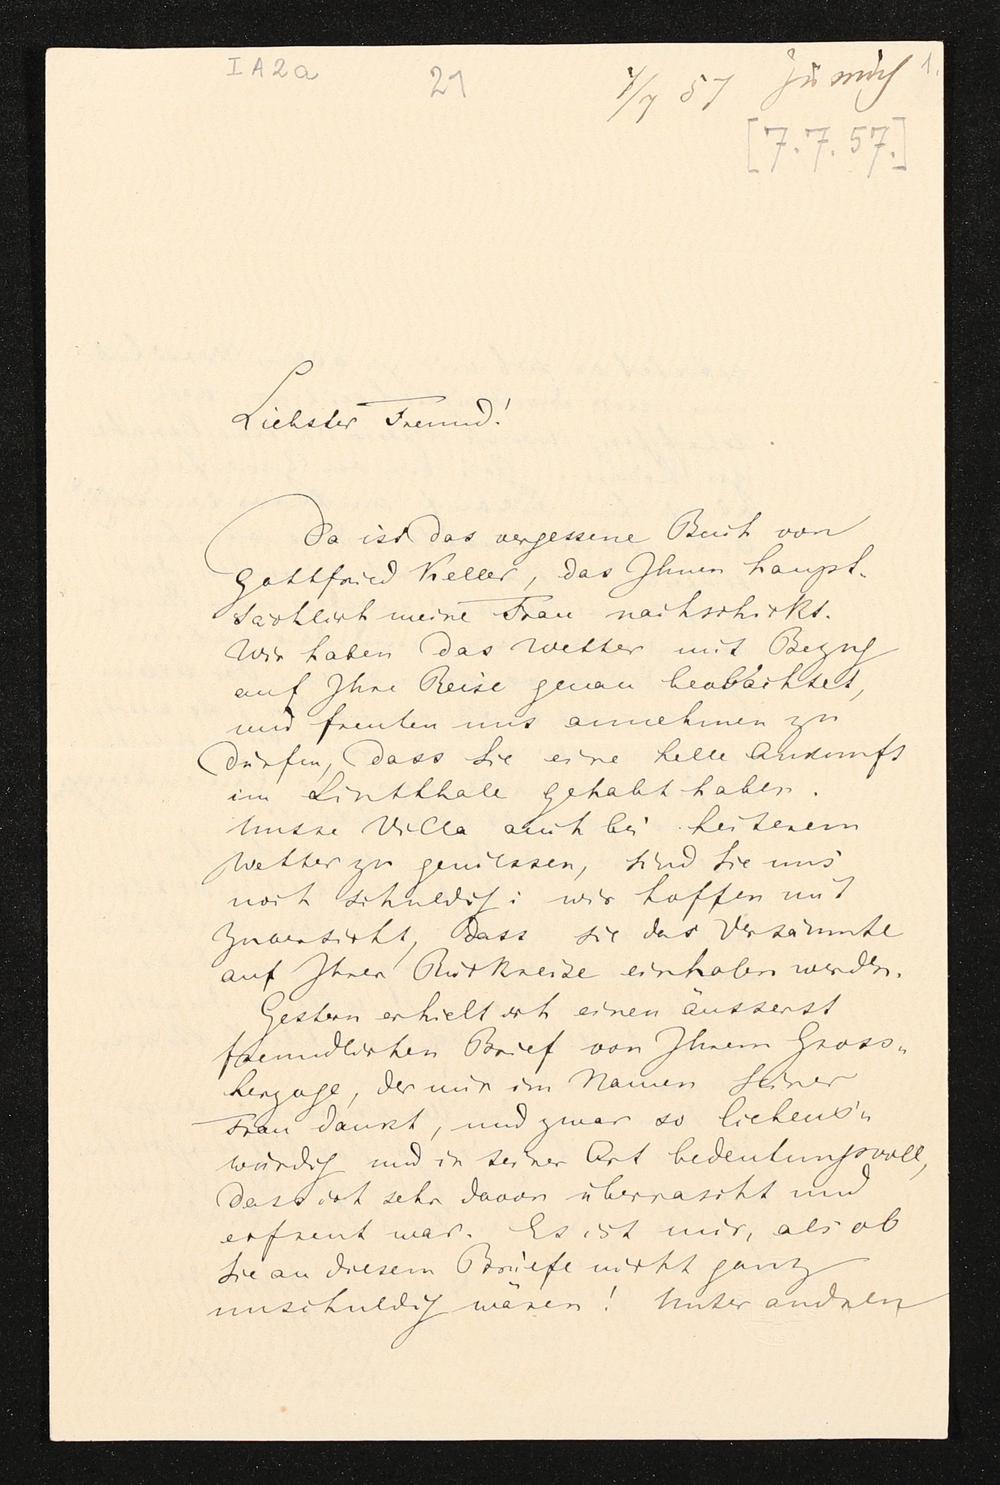 I A 2 a
21
7/7 57
Zürich
1.
[7.7.57.]
Liebster Freund!
Da ist das vergessene Buch von
Gottfried Keller, das Ihnen haupt-
sächlich meine Frau nachschickt.
Wir haben das Wetter mit Bezug
auf Ihre Reise genau beobachtet,
und freuten uns annehmen zu
dürfen, dass Sie eine helle Ankunft
im Linththale gehabt haben.
Unsre Villa auch bei heiterem
Wetter zu geniessen, sind Sie uns
noch schuldig: wir hoffen mit
Zuversicht, dass Sie das Versäumte
auf Ihrer Rückreise einholen werden.
Gestern erhielt ich einen äusserst
freundlichen Brief von Ihrem Gross-
herzoge, der mir im Namen seiner
Frau dankt, und zwar so liebens-
würdig und in seiner Art bedeutungsvoll,
dass ich sehr davon überrascht und
erfreut war. Es ist mir, als ob
Sie an diesem Briefe nicht ganz
unschuldig wären! Unter andren